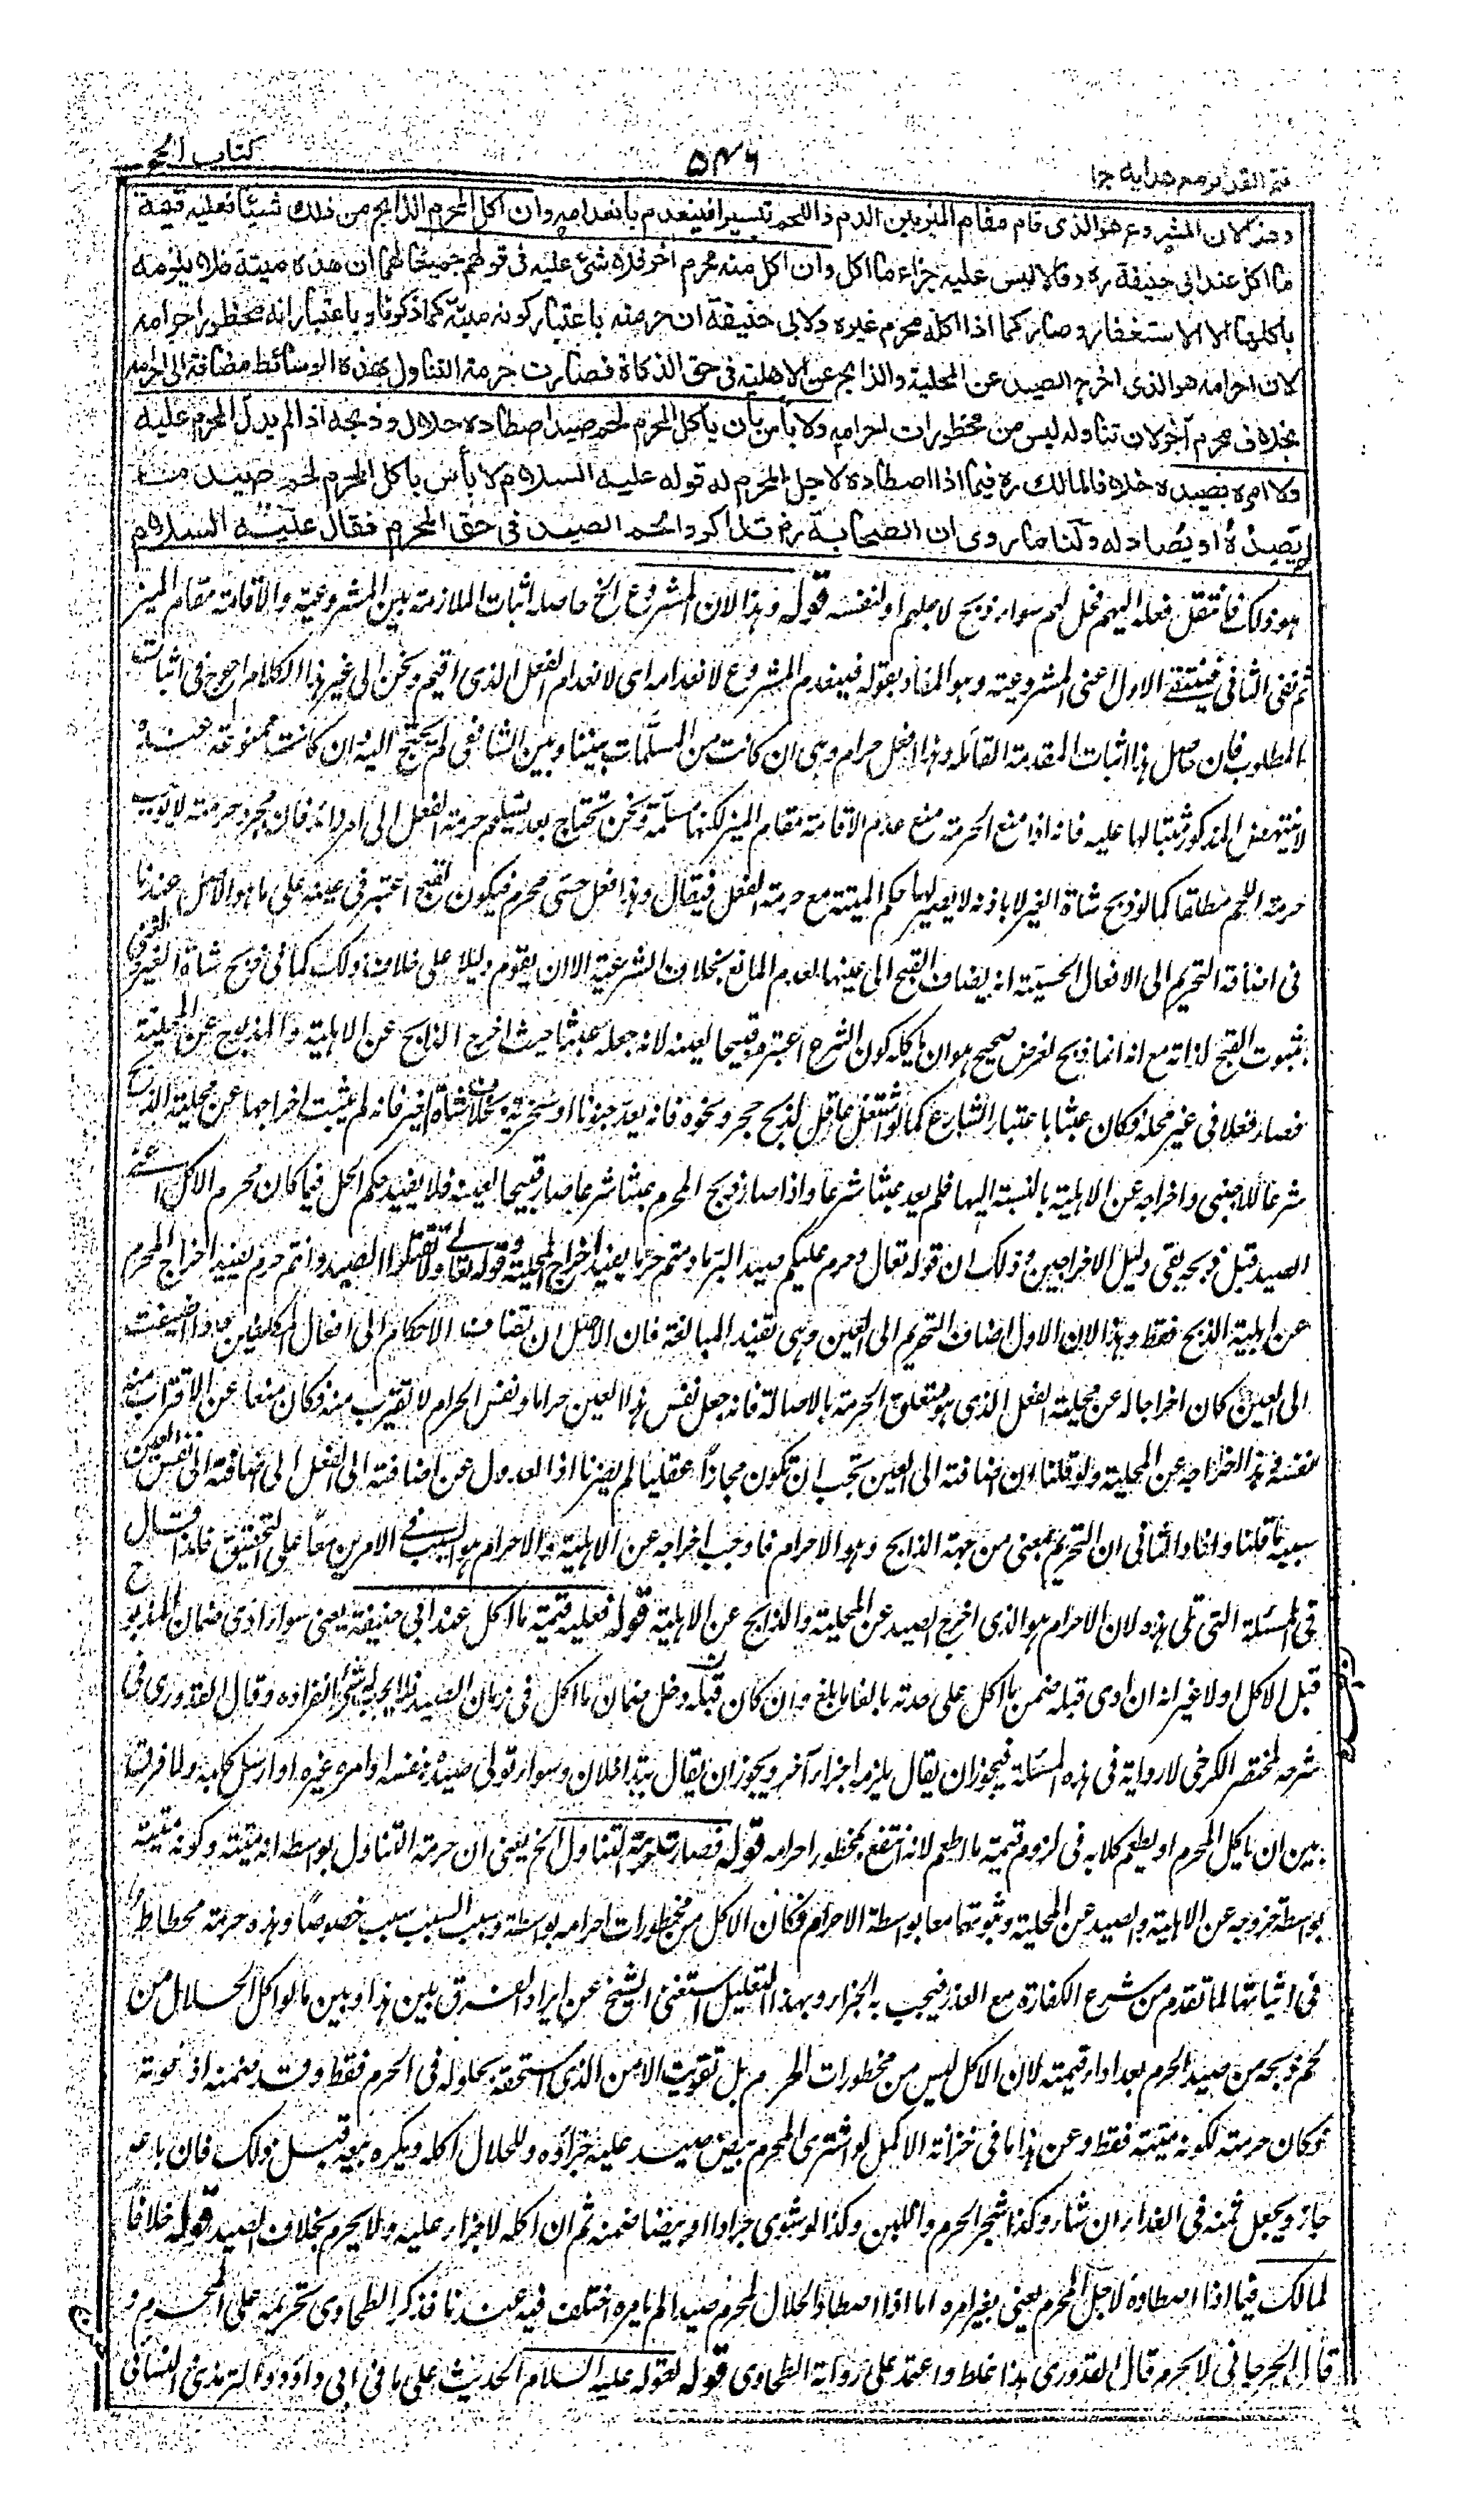 فتح القدير مع هدايه ج١
٥٤٦
كتاب الحج
وهذا لان المشروع هو الذى قام مقام الميز بين الدم واللحم تيسيرا فينعدم بانعدامه وان اكل المحرم الذابح من ذلك شيئا فعليه قيمة
ما اكل عند ابى حنيفة ره وقالا ليس عليه جزاء ما اكل وان اكل منه محرم اخر فلا شئ عليه فى قولهم جميعا لهما ان هذه ميتة فلا يلزمه
باكلها الا الاستغفار وصار كما اذا اكله محرم غيره ولابى حنيفة ان حرمته باعتبار كونه ميتة كما ذكرنا وباعتبار انه محظور احرامه
لان احرامه هو الذى اخرج الصيد عن المحلية والذابح عن الاهلية فى حق الذكاة فصارت حرمة التناول بهذه الوسائط مضافة الى احرامه
بخلاف محرم آخر لان تناوله ليس من محظورات احرامه ولا بأس بأن يأكل المحرم لحم صيد اصطاده حلال وذبحه اذا لم يدل المحرم عليه
ولا امره بصيده خلافا لمالك ره فيما اذا اصطاده لاجل المحرم له قوله عليه السلام لا بأس باكل المحرم لحم صيد ما لم
يصيده او يصاد له ولنا ما روى ان الصحابة رض تذاكروا لحم الصيد فى حق المحرم فقال عليه السلام
هو ذلك فانتقل فعله اليهم فحل لهم سواء ذبح لاجلهم او لنفسه قوله وهذا لان المشروع الخ حاصله اثبات الملازمة بين المشروعية والاقامة مقام الميز
ثم نفى الثانى فينتفى الاول اعنى المشروعية وهو المفاد بقوله فينعدم المشروع لانعدامه اى لانعدام الفعل الذى اقيم ونحن الى غير ذا الكلام احوج فى اثبات
المطلوب فان حاصل هذا اثبات المقدمة القائلة وهذا فعل حرام وهى ان كانت من المسلمات بيننا وبين الشافعى لم يحتج اليه وان كانت ممنوعة عنده
لا ينتهض المذكور مثبتا لها عليه فانه اذا منع الحرمة منع عدم الاقامة مقام الميز لكنها مسلمة ونحن نحتاج بعد تسليم حرمة الفعل الى امر زائد فان مجرد حرمته لا يوجب
حرمة اللحم مطلقا كما لو ذبح شاة الغير لا باذنه لا يصير لها حكم الميتة مع حرمة الفعل فيقال وهذا فعل حسى محرم فيكون لقبح اعتبر فى عينه على ما هو الاصل عندنا
فى اضافة التحريم الى الافعال الحسية انه يضاف القبح الى عينها لعدم المانع بخلاف الشرعية الا ان يقوم دليل على خلاف ذلك كما فى ذبح شاة الغير
بثبوت القبح لذاته مع انه انما ذبح لغرض صحيح هو ان يأكله كون الشرع اعتبره قبيحا لعينه لانه جعله عبثا حيث اخرج الذابح عن الاهلية والمذبوح عن المحلية
فصار فعلا فى غير محله فكان عبثا باعتبار الشارع كما لو اشتغل عاقل بذبح حجر ونحوه فانه يعد جنونا او سخرية بخلاف شاة الغير فانه لم يثبت اخراجها عن محلية الذبح
شرعا للاجنبى واخراجه عن الاهلية بالنسبة اليها فلم يعد عبثا شرعا واذا صار ذبح المحرم عبثا شرعا صار قبيحا لعينه فلا يفيد حكم الحل فيما كان محرم الاكل اعنى
الصيد قبل ذبحه بقى دليل الاخراجين وذلك ان قوله تعالى وحرم عليكم صيد البر ما دمتم حرما يفيد اخراج المحلية وقوله تعالى ولا تقتلوا الصيد وانتم حرم يفيد اخراج المحرم
عن اهلية الذبح فقط وهذا لان الاول اضاف التحريم الى العين وهى تفيد المبالغة فان الاصل ان تضاف الاحكام الى افعال المكلفين فاذا اضيفت
الى العين كان اخراجا له عن محلية الفعل الذى هو متعلق الحرمة بالاصالة فانه جعل نفس هذا العين حراما ونفس الحرام لا تقترب منه فكان منعا عن الاقتراب منه
نفسه فهذا اخراجه عن المحلية ولو قلنا ان اضافته الى العين تجب ان تكون مجازا عقليا لم يضرنا اذ العدول عن اضافته الى الفعل الى اضافته الى نفس العين
سببه ما قلنا وافاد الثانى ان التحريم لمعنى من جهة الذابح وهو الاحرام فاوجب اخراجه عن الاهلية والاحرام هو السبب فى الامرين معا على التحقيق فلذا قال
فى المسئلة التى تلى هذه لان الاحرام هو الذى اخرج الصيد عن المحلية والذابح عن الاهلية قوله فعليه قيمة ما اكل عند ابى حنيفة يعنى سواء ادى ضمان المذبوح
قبل الاكل اولا غير انه ان ادى قبله ضمن ما اكل على حدته بالغا ما بلغ وان كان قبله دخل ضمان ما اكل فى ضمان الصيد فلا يجب له شئ بانفراده وقال القدورى فى
شرحه لمختصر الكرخى لا رواية فى هذه المسئلة فيجوز ان يقال يلزمه جزاء آخر ويجوز ان يقال يتداخلان وسواء تولى صيده بنفسه او امر به غيره او ارسل كلبه ولا فرق
بين ان ياكل المحرم او يطعم كلابه فى لزوم قيمة ما اطعم لانه انتفع بمحظور احرامه قوله فصارت حرمة التناول الخ يعنى ان حرمة التناول بواسطة انه ميتة وكونه ميتة
بواسطة خروجه عن الاهلية والصيد عن المحلية وثبوتهما معا بواسطة الاحرام فكان الاكل من محظورات احرامه بواسطة وسبب السبب سبب خصوصا وهذه حرمة يحتاط
فى اثباتها لما تقدم من شرع الكفارة مع العذر فيجب به الجزاء وبهذا التعليل استغنى الشيخ عن ايراد الفرق بين هذا وبين ما لو اكل الحلال من
لحم ذبحه من صيد الحرم بعد اداء قيمته لان الاكل ليس من محظورات الحرم بل تفويت الامن الذى استحقه بحلوله فى الحرم فقط وقد ضمنه اذ فوته
فكان حرمته لكونه ميتة فقط وعن هذا ما فى خزانة الاكمل لو اشترى المحرم بيض صيد عليه جزاؤه وللحلال اكله ويكره بيعه قبل ذلك فان باعه
جاز ويجعل ثمنه فى الفداء ان شاء وكذا شجر الحرم واللبن وكذا لو شوى جرادا او بيضا ضمنه ثم ان اكله لا جزاء عليه ولا يحرم بخلاف الصيد قوله خلافا
لمالك فيما اذا اصطاده لاجل المحرم يعنى بغير امره اما اذا اصطاد الحلال لمحرم صيدا لم يامره اختلف فيه عندنا فذكر الطحاوى تحريمه على المحرم و
قال الجرجانى لا يحرم قال القدورى هذا غلط واعتمد على رواية الطحاوى قوله لقوله عليه السلام الحديث على ما فى ابى داؤد والترمذى والنسائى